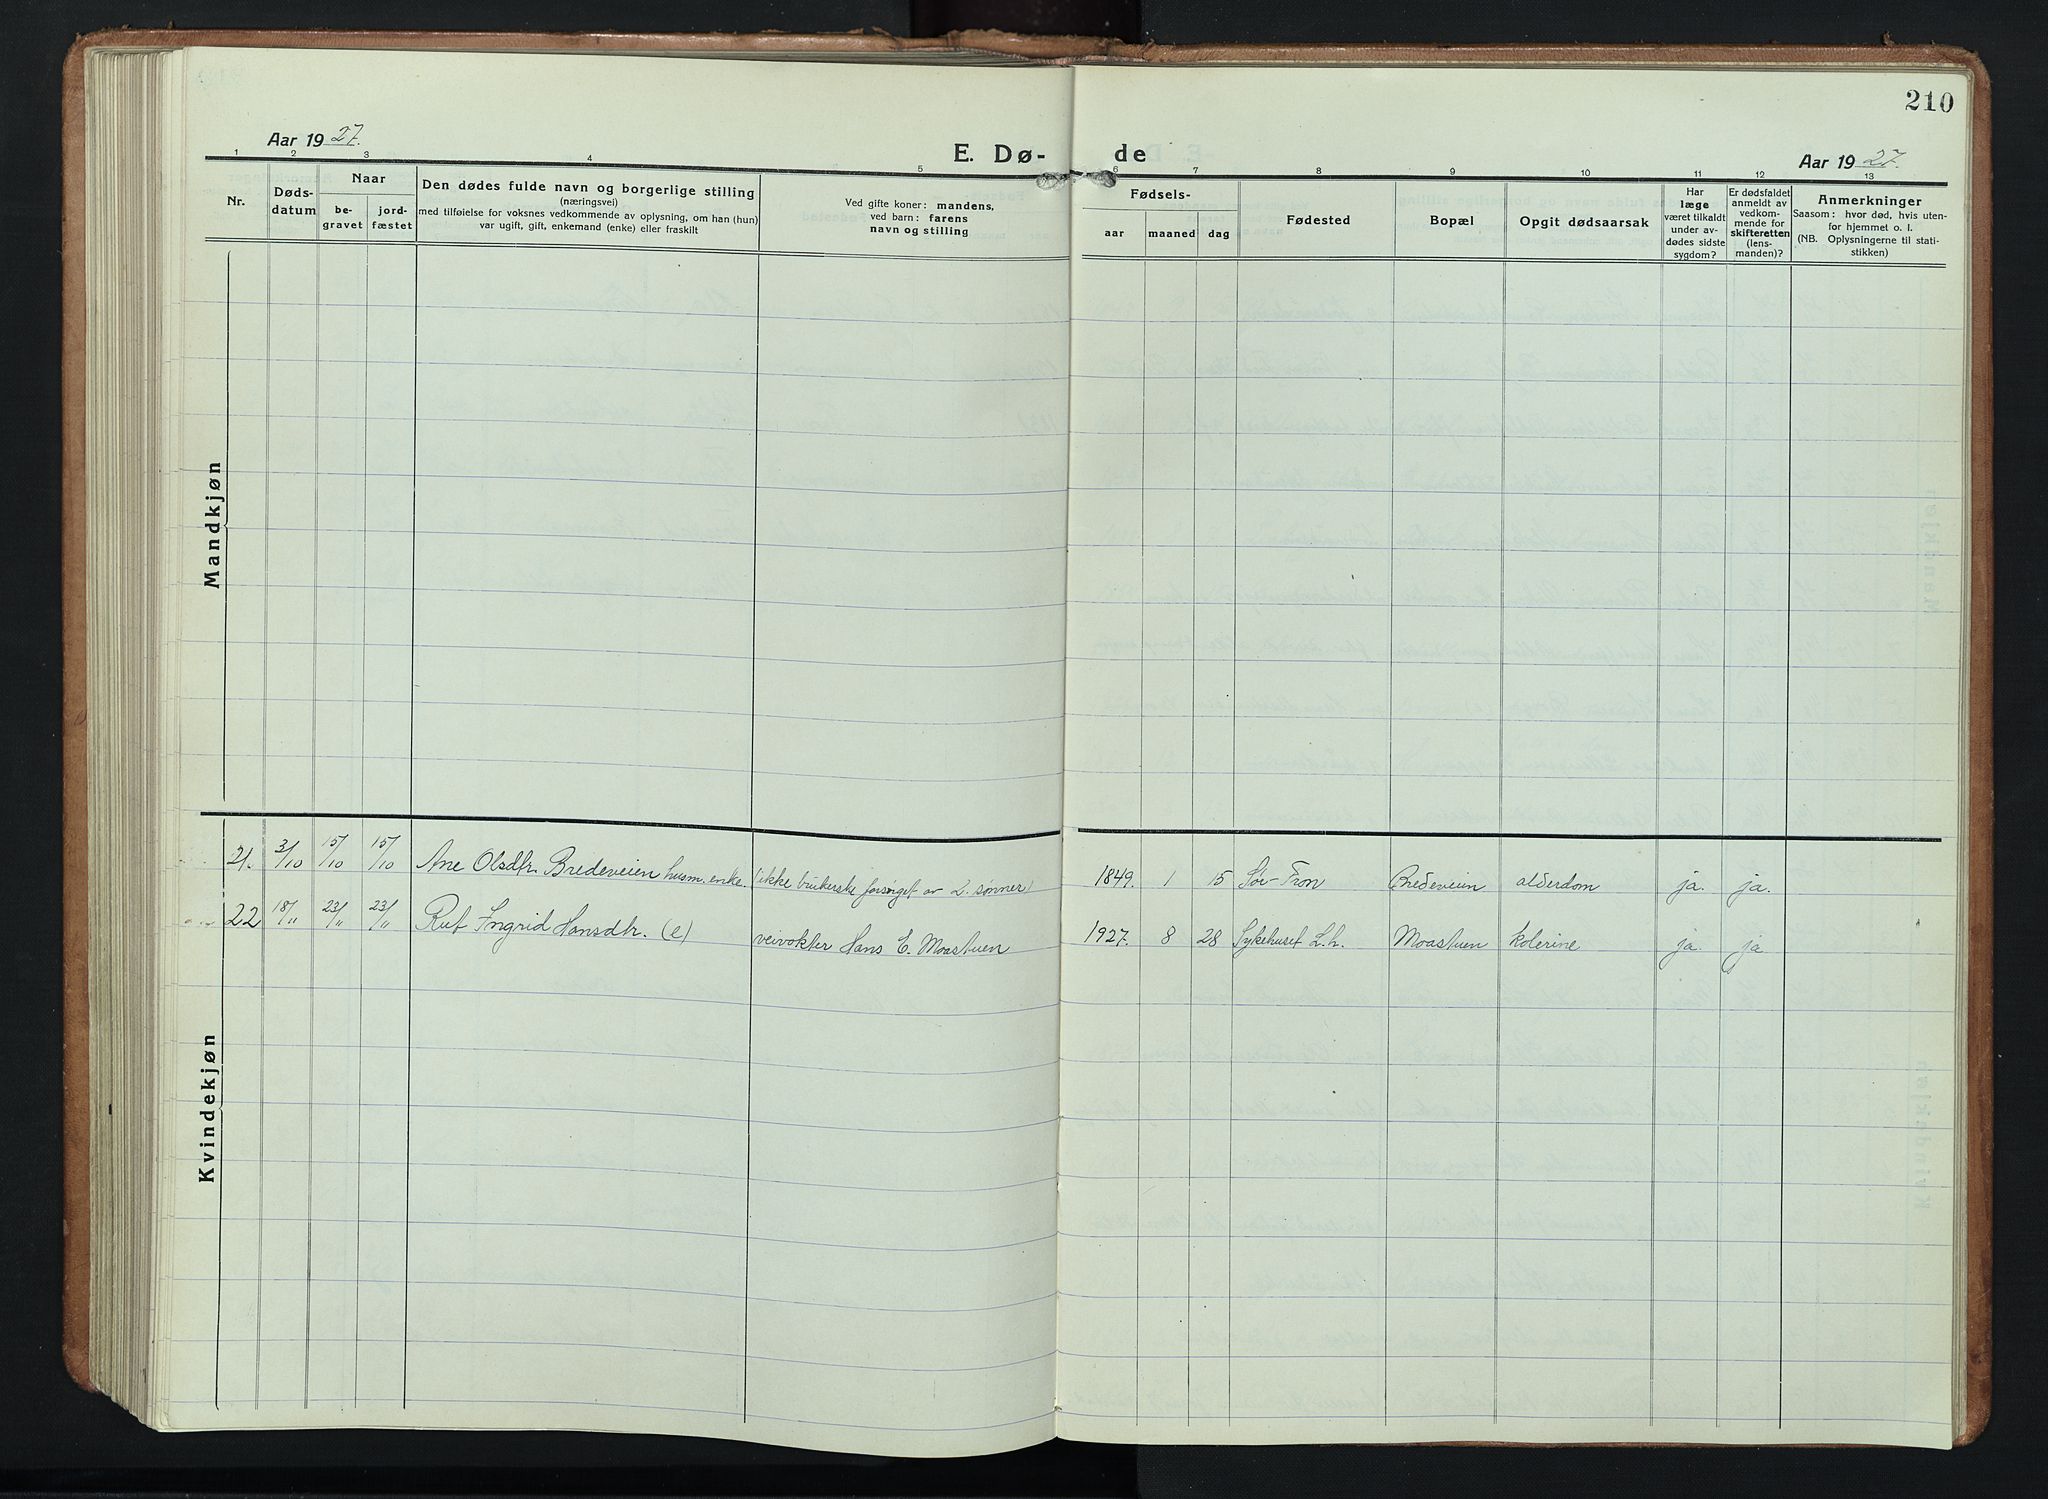 210
Aar 1927.
E. Dø-
de
Aar 1927.
1 2 3 4 5 6 7 8 9 10 11 12 13
Nr.
Døds-
datum
Naar
be-
gravet
jord-
fæstet
Den dødes fulde navn og borgerlige stilling
(næringsvei)
med tilføielse for voksnes vedkommende av oplysning, om han (hun)
var ugift, gift, enkemand (enke) eller fraskilt
Ved gifte koner: mandens,
ved barn: farens
navn og stilling
Fødsels-
aar
maaned
dag
Fødested
Bopæl
Opgit dødsaarsak
Har
læge
været tilkaldt
under av-
dødes sidste
sygdom?
Er dødsfaldet
anmeldt av
vedkom-
mende for
skifteretten
(lens-
manden)?
Anmerkninger
Saasom: hvor død, hvis uten-
for hjemmet o. l.
(NB. Oplysningerne til stati-
stikken)
Mandkjøn
Kvindekjøn
21. 3/10 15/10 15/10 Ane Olsdtr. Bredeveien husm. enke. (ikke brukerske forsørget av 2 sønner) 1849. 1 15 Sør-Fron Bredeveien alderdom ja. ja.
22 18/11 23/11 23/11 Rut Ingrid Hansdtr. (e) veivokter Hans E. Moastuen 1927. 8 28 Sykehuset L.h. Moastuen kolerine ja. ja